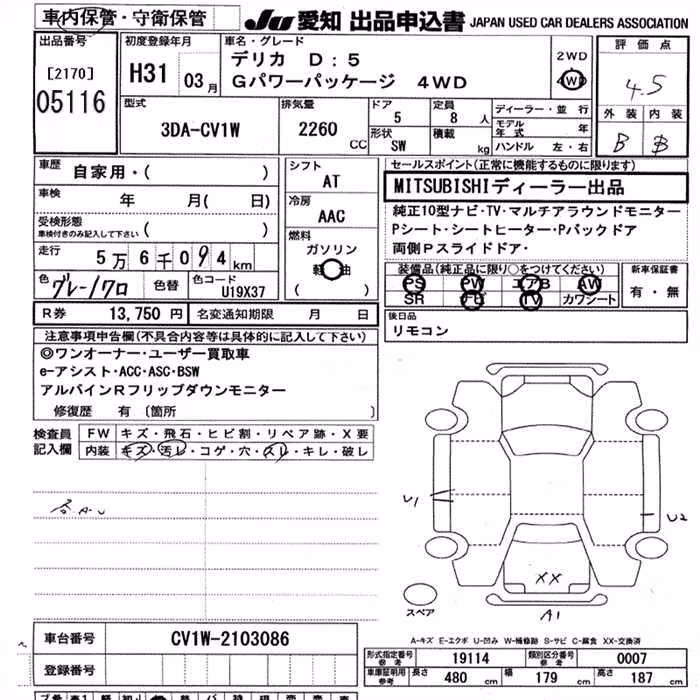 車内保管・守衛保管 JU 愛知 出品申込書 JAPAN USED CAR DEALERS ASSOCIATION
出品番号
[2170]
05116
初度登録年月
H31 03月
車名・グレード
デリカ D:5
Gパワーパッケージ 4WD
2WD
4WD
評価点
4.5
外装 内装
B B
型式
3DA-CV1W
排気量
2260 CC
ドア
5
定員
8 人
形状
SW
積載
kg
ディーラー・並行
モデル年式 年
ハンドル 左・右
車歴 自家用・( )
車検 年 月( 日)
受検形態
車検付きのみ記入して下さい ( )
走行 5万6千094km
色 グレー/クロ 色替 色コード U19X37
シフト
AT
冷房
AAC
燃料
ガソリン
軽油
( )
セールスポイント(正常に機能するものに限ります)
MITSUBISHIディーラー出品
純正10型ナビ・TV・マルチアラウンドモニター
Pシート・シートヒーター・Pバックドア
両側Pスライドドア・
装備品(純正品に限り○をつけてください)
PS PW エアB AW
SR ナビ TV カワシート
新車保証書
有・無
R券 13,750 円 名変通知期限 月 日
後日品
リモコン
注意事項申告欄(不具合内容等は具体的に記入して下さい)
◎ワンオーナー・ユーザー買取車
e-アシスト・ACC・ASC・BSW
アルパインRフリップダウンモニター
修復歴 有 〔箇所 〕
検査員記入欄
FW キズ・飛石・ヒビ割・リペア跡・X要
内装 キズ・汚レ・コゲ・穴・スレ・キレ・破レ
U1
U2
XX
A1
スペア
A-キズ E-エクボ U-凹み W-補修跡 S-サビ C-腐食 XX-交換済
車台番号 CV1W-2103086
登録番号
形式指定番号 参考 19114 類別区分番号 参考 0007
車庫証明用 参考 長さ 480 cm 幅 179 cm 高さ 187 cm